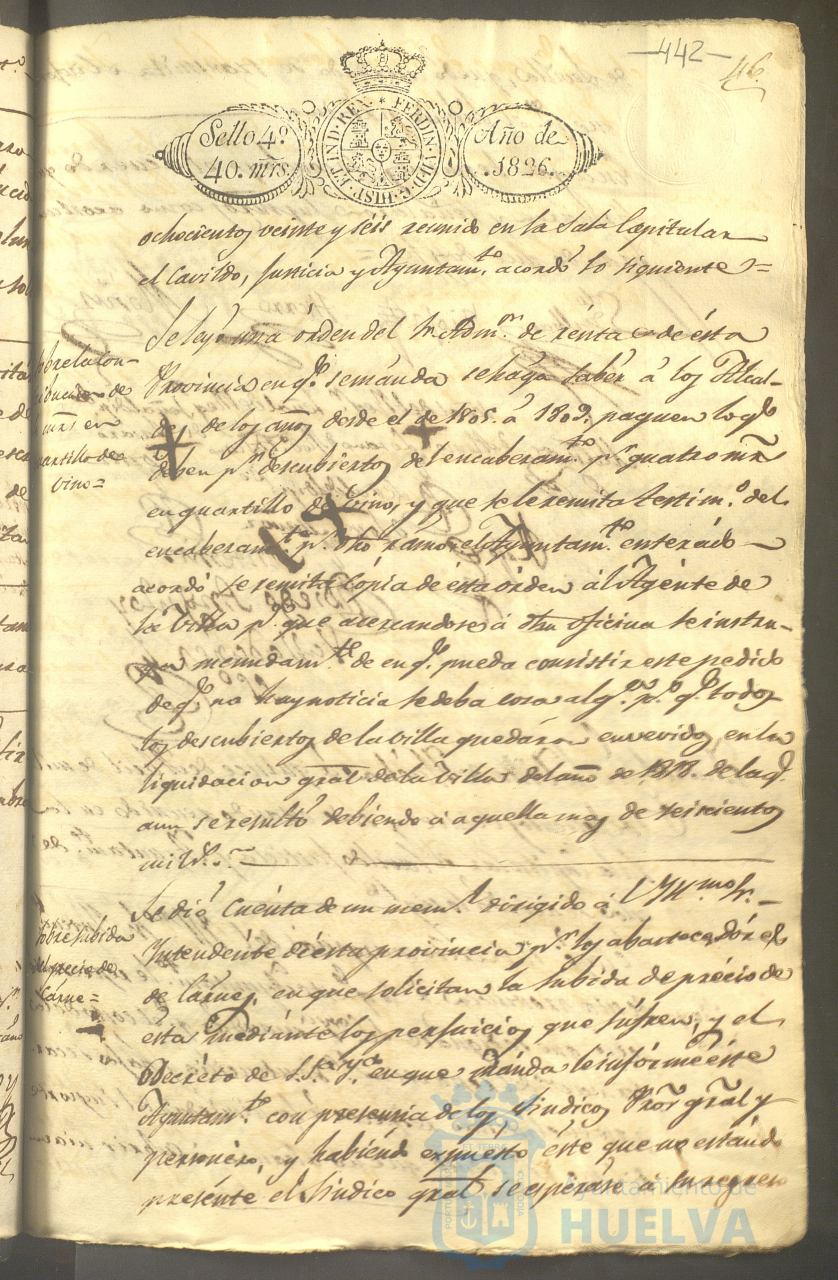 -442-
46.
Sello 4º
40. mrs.
FERDIN. VII. D. G. HISP. ET IND. REX
Año de
1826.
ochocientos veinte y seis reunido en la Sala Capitular
el Cavildo, Justicia y Ayuntamto. acordó lo siguiente=
Se leyó una orden del Sr. Admor. de rentas de ésta
Provincia en qe. se manda se haga saber á los Alcal-
des de los años desde el de 1805. á 1809. paguen lo qe.
deben pr. descubiertos del encabezamto. pr. quatro mrs.
en quartillo de vino, y que se le remita testimo. del
encabezamto. pr. dho ramo, el Ayuntamto. enterado
acordó se remita cópia de ésta órden ál Agénte de
la Villa pa. que acercandose á dha oficina se instru-
ya menudamte. de en qe. pueda consistir este pedido
de qe. no hay noticia se deba cosa algna. pr. qe. todos
los descubiertos de la villa quedáron envevidos en la
liquidacion gral de la Villa del año de 1818. de la qe.
aun se resultó debiendo á aquella mas de seiscientos
mil rs.
Se dió cuénta de un meml. dirigido ál Ylmo. Sr.
Intendénte de ésta provincia pr. los abastecedóres
de Cárnes, en que solicitan la subida de précio de
ésta mediánte los perjuicios que súfren, y el
Decréto de S.S. en que mánda le infórme éste
Ayuntamto. con presencia de los Síndicos Pror. gral y
personéro, y habiéndo expuesto éste que no estándo
presénte el Síndico gral se esperáse á su regreso
Sobre la con-
de
mrs en
quartillo de
vino=
Sobre subida
del precio de
Cárne=
Ayuntamiento de
HUELVA